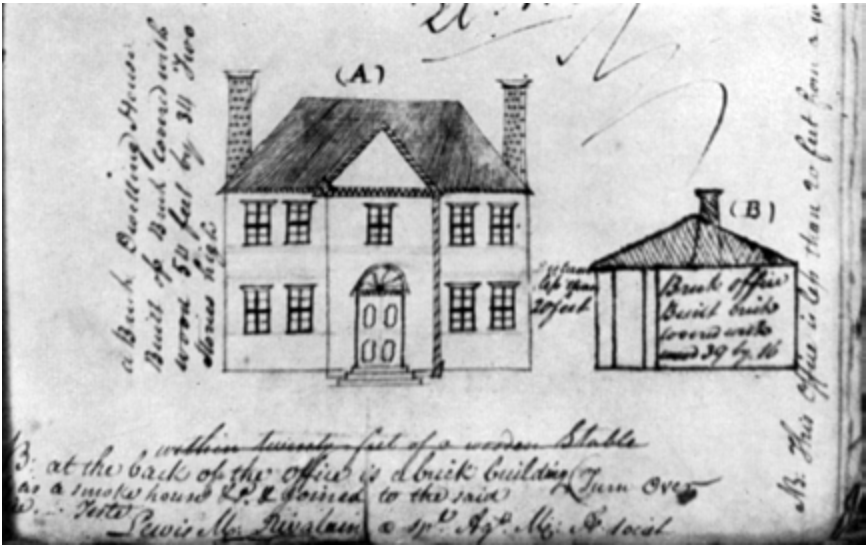 (A)
a Brick Dwelling House
Built of Brick Covered with
wood 54 feet by 34 Two
stories high
(B)
less than
20 feet
Brick office
Built brick
covered with
wood 39 by 16
NB. This Office is less than 20 feet from a
within twenty feet of a wooden Stable
B: at the back of the office is a brick building (Turn Over
as a smoke house &c. & Joined to the said
Teste
Lewis M. Rivalain a spl. Agt. M: A: Socit